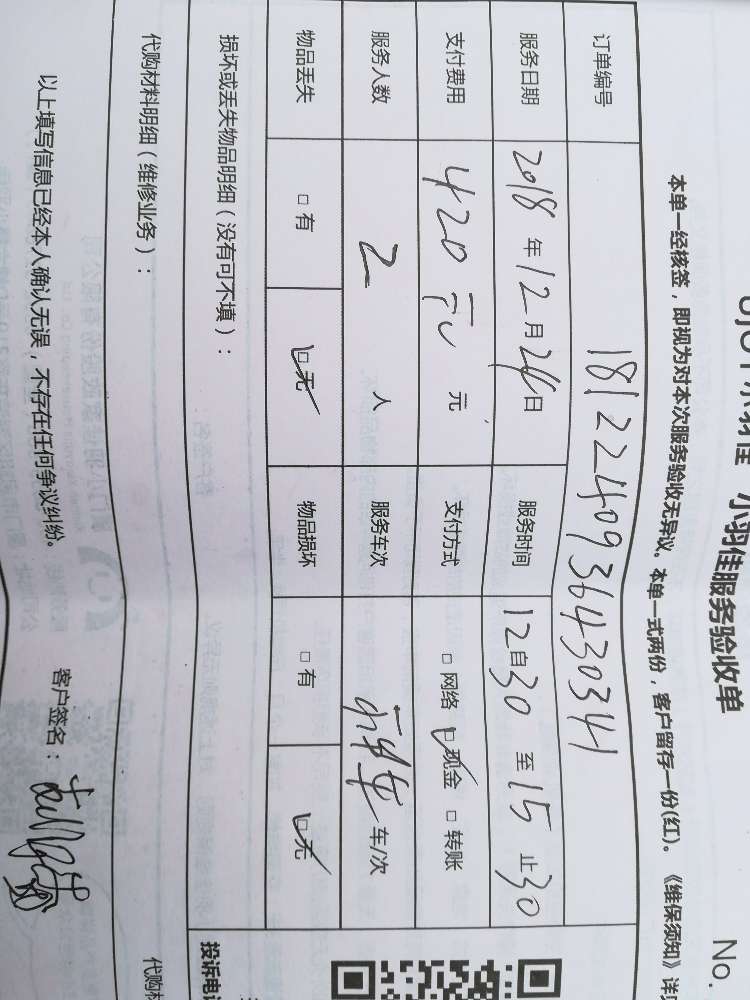 小羽佳服务验收单
No.
本单一经核签，即视为对本次服务验收无异议。本单一式两份，客户留存一份(红)。《维保须知》详
订单编号 1812240936430341
服务日期 2018年12月24日 服务时间 12自30至15止30
支付费用 420元 元 支付方式 □网络 ☑现金 □转账
服务人数 2人 服务车次 车/次
物品丢失 □有 ☑无 物品损坏 □有 ☑无
损坏或丢失物品明细（没有可不填）：
投诉电
代购材料明细（维修业务）：
代购材
以上填写信息已经本人确认无误，不存在任何争议纠纷。
客户签名：